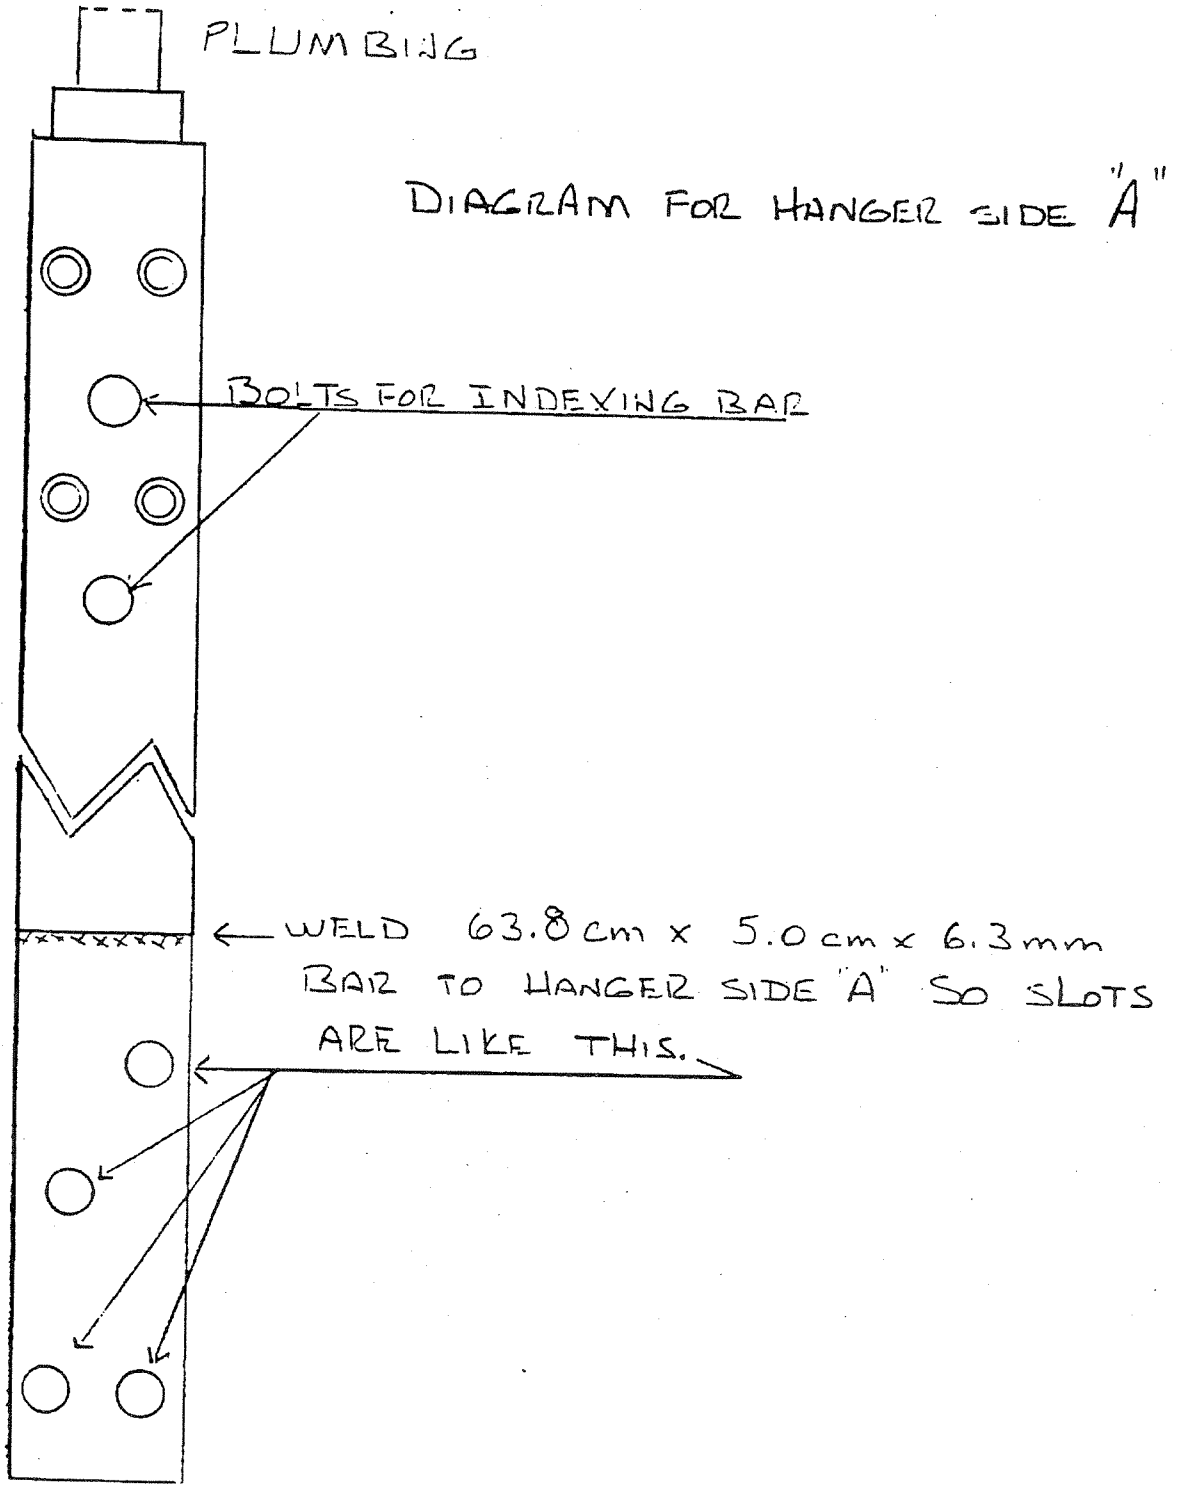 PLUMBING
DIAGRAM FOR HANGER SIDE "A"
BOLTS FOR INDEXING BAR
WELD 63.8 cm x 5.0 cm x 6.3 mm
BAR TO HANGER SIDE "A" SO SLOTS
ARE LIKE THIS.